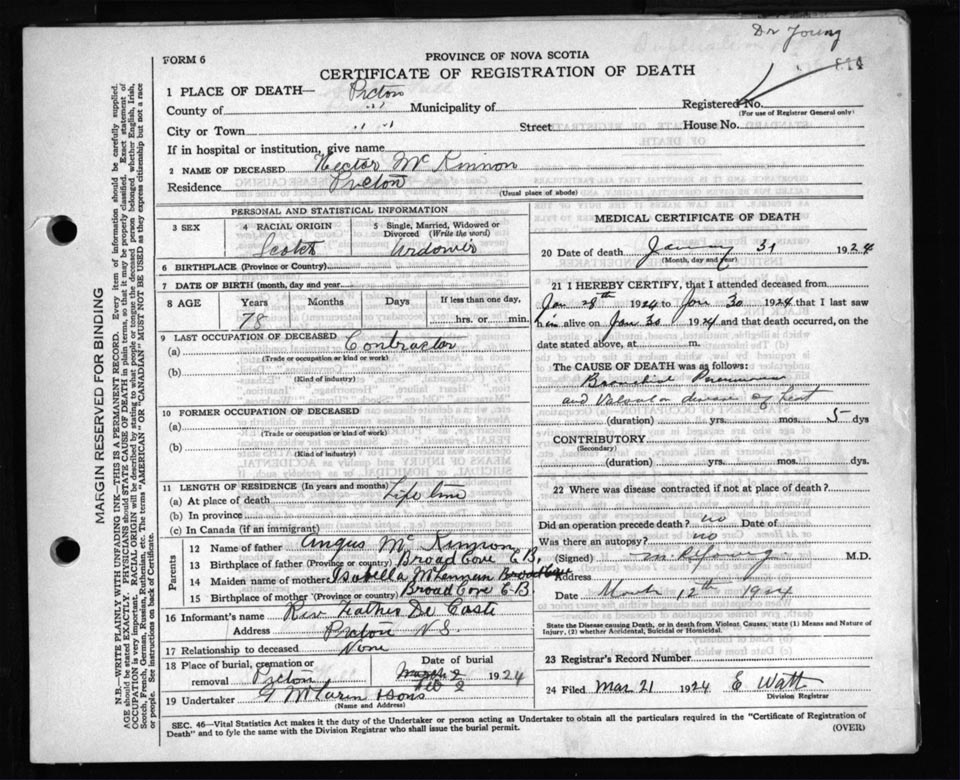 Dr Young
FORM 6
PROVINCE OF NOVA SCOTIA
CERTIFICATE OF REGISTRATION OF DEATH
1 PLACE OF DEATH— Pictou
County of " Municipality of Registered No.
(For use of Registrar General only)
City or Town " " Street House No.
If in hospital or institution, give name
2 NAME OF DECEASED Hector McKinnon
Residence Pictou
(Usual place of abode)
PERSONAL AND STATISTICAL INFORMATION
3 SEX 4 RACIAL ORIGIN 5 Single, Married, Widowed or Divorced (Write the word)
Scotch Widower
6 BIRTHPLACE (Province or Country)
7 DATE OF BIRTH (month, day and year)
8 AGE Years Months Days If less than one day,
78 hrs. or min.
9 LAST OCCUPATION OF DECEASED Contractor
(a)
(Trade or occupation or kind of work)
(b)
(Kind of industry)
10 FORMER OCCUPATION OF DECEASED
(a)
(Trade or occupation or kind of work)
(b)
(Kind of industry)
11 LENGTH OF RESIDENCE (In years and months)
(a) At place of death Life time
(b) In province
(c) In Canada (if an immigrant)
Parents
12 Name of father Angus McKinnon
13 Birthplace of father (Province or country) Broad Cove C.B.
14 Maiden name of mother Isabella McLennan Broad Cove
15 Birthplace of mother (Province or country) Broad Cove C.B.
16 Informant's name Rev Father De Coste
Address Pictou N.S.
17 Relationship to deceased None
18 Place of burial, cremation or removal Pictou Date of burial March 2 Feb 2 1924
19 Undertaker G McLaren & Sons
(Name and Address)
MEDICAL CERTIFICATE OF DEATH
20 Date of death January 31 1924
(Month, day and year)
21 I HEREBY CERTIFY, that I attended deceased from
Jan 28th 1924 to Jan 30 1924 that I last saw
him alive on Jan 30 1924 and that death occurred, on
date stated above, at m.
The CAUSE OF DEATH was as follows:
Bronchial Pneumonia
and Valvular disease of heart
(duration) yrs. mos. 5 dys
CONTRIBUTORY
(Secondary)
(duration) yrs. mos. dys.
22 Where was disease contracted if not at place of death?
Did an operation precede death? no Date of
Was there an autopsy? no
(Signed) M.D.
Address
Date March 12th 1924
State the Disease causing Death, or in death from Violent Causes, state (1) Means and Nature of
Injury, (2) whether Accidental, Suicidal or Homicidal.
23 Registrar's Record Number
24 Filed Mar 21 1924 E Watt
Division Registrar
SEC. 46—Vital Statistics Act makes it the duty of the Undertaker or person acting as Undertaker to obtain all the particulars required in the "Certificate of Registration of
Death" and to fyle the same with the Division Registrar who shall issue the burial permit.
(OVER)
MARGIN RESERVED FOR BINDING
N.B.—WRITE PLAINLY WITH UNFADING INK—THIS IS A PERMANENT RECORD. Every item of information should be carefully supplied.
AGE should be stated EXACTLY. PHYSICIANS should STATE CAUSE OF DEATH in plain terms, so that it may be properly classified. Exact statement of
OCCUPATION is very important. RACIAL ORIGIN will be described by stating to what people or tongue the deceased person belonged whether English, Irish,
Scotch, French, German, Russian, Ruthenian, etc. The terms "AMERICAN" or "CANADIAN" MUST NOT BE USED as they express citizenship but not a race
or people. See instructions on back of Certificate.